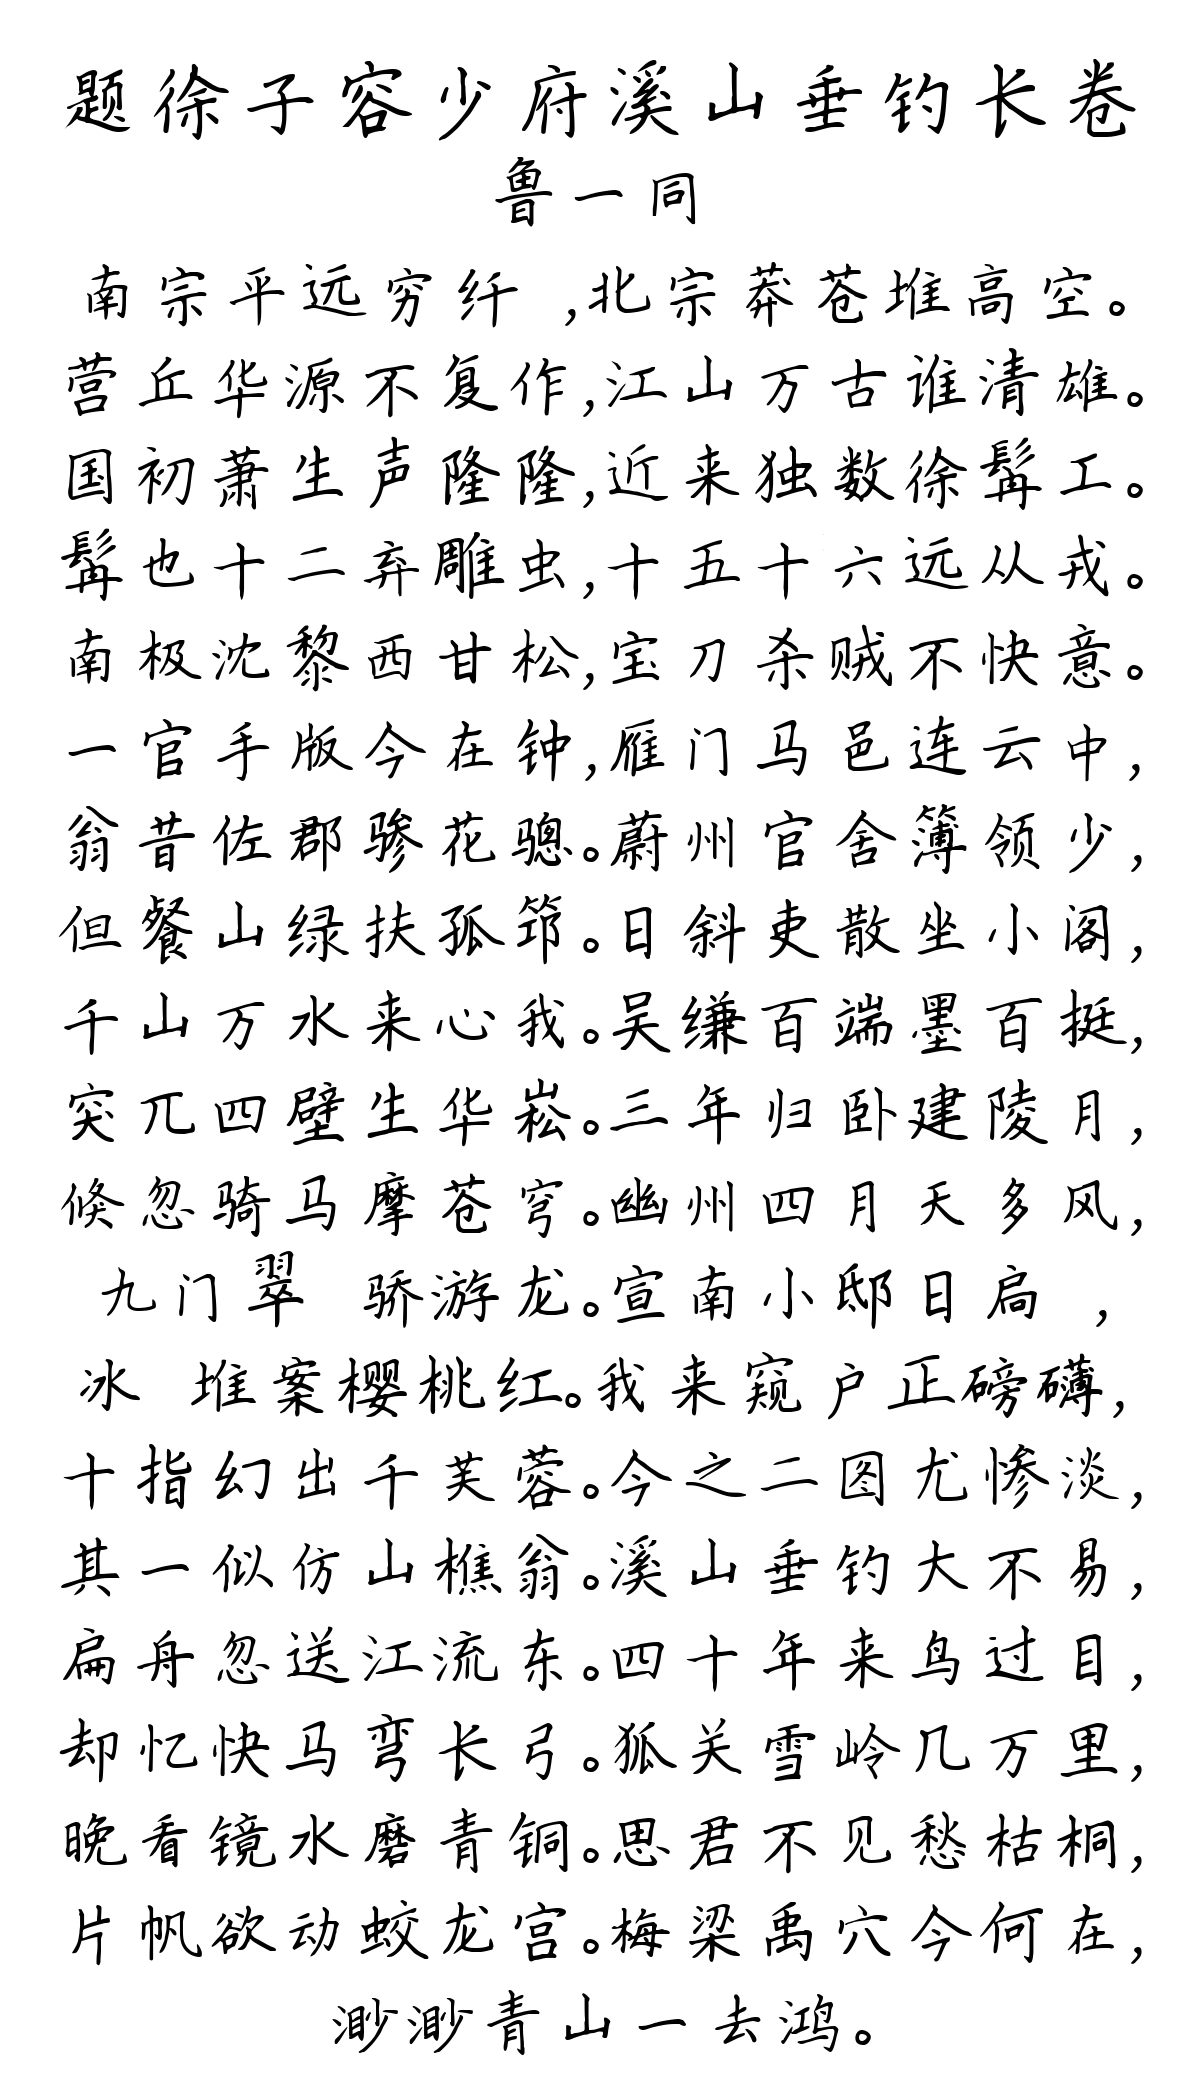 题徐子容少府溪山垂钓长卷
鲁一同
南宗平远穷纤 ,北宗莽苍堆高空。
营丘华源不复作,江山万古谁清雄。
国初萧生声隆隆,近来独数徐髯工。
髯也十二弃雕虫,十五十六远从戎。
南极沈黎西甘松,宝刀杀贼不快意。
一官手版今在钟,雁门马邑连云中,
翁昔佐郡骖花骢。蔚州官舍簿领少,
但餐山绿扶孤筇。日斜吏散坐小阁,
千山万水来心我。吴缣百端墨百挺,
突兀四壁生华崧。三年归卧建陵月,
倏忽骑马摩苍穹。幽州四月天多风,
九门翠 骄游龙。宣南小邸日扃 ,
冰 堆案樱桃红。我来窥户正磅礴,
十指幻出千芙蓉。今之二图尤惨淡,
其一似仿山樵翁。溪山垂钓大不易,
扁舟忽送江流东。四十年来鸟过目,
却忆快马弯长弓。狐关雪岭几万里,
晚看镜水磨青铜。思君不见愁枯桐,
片帆欲动蛟龙宫。梅梁禹穴今何在,
渺渺青山一去鸿。